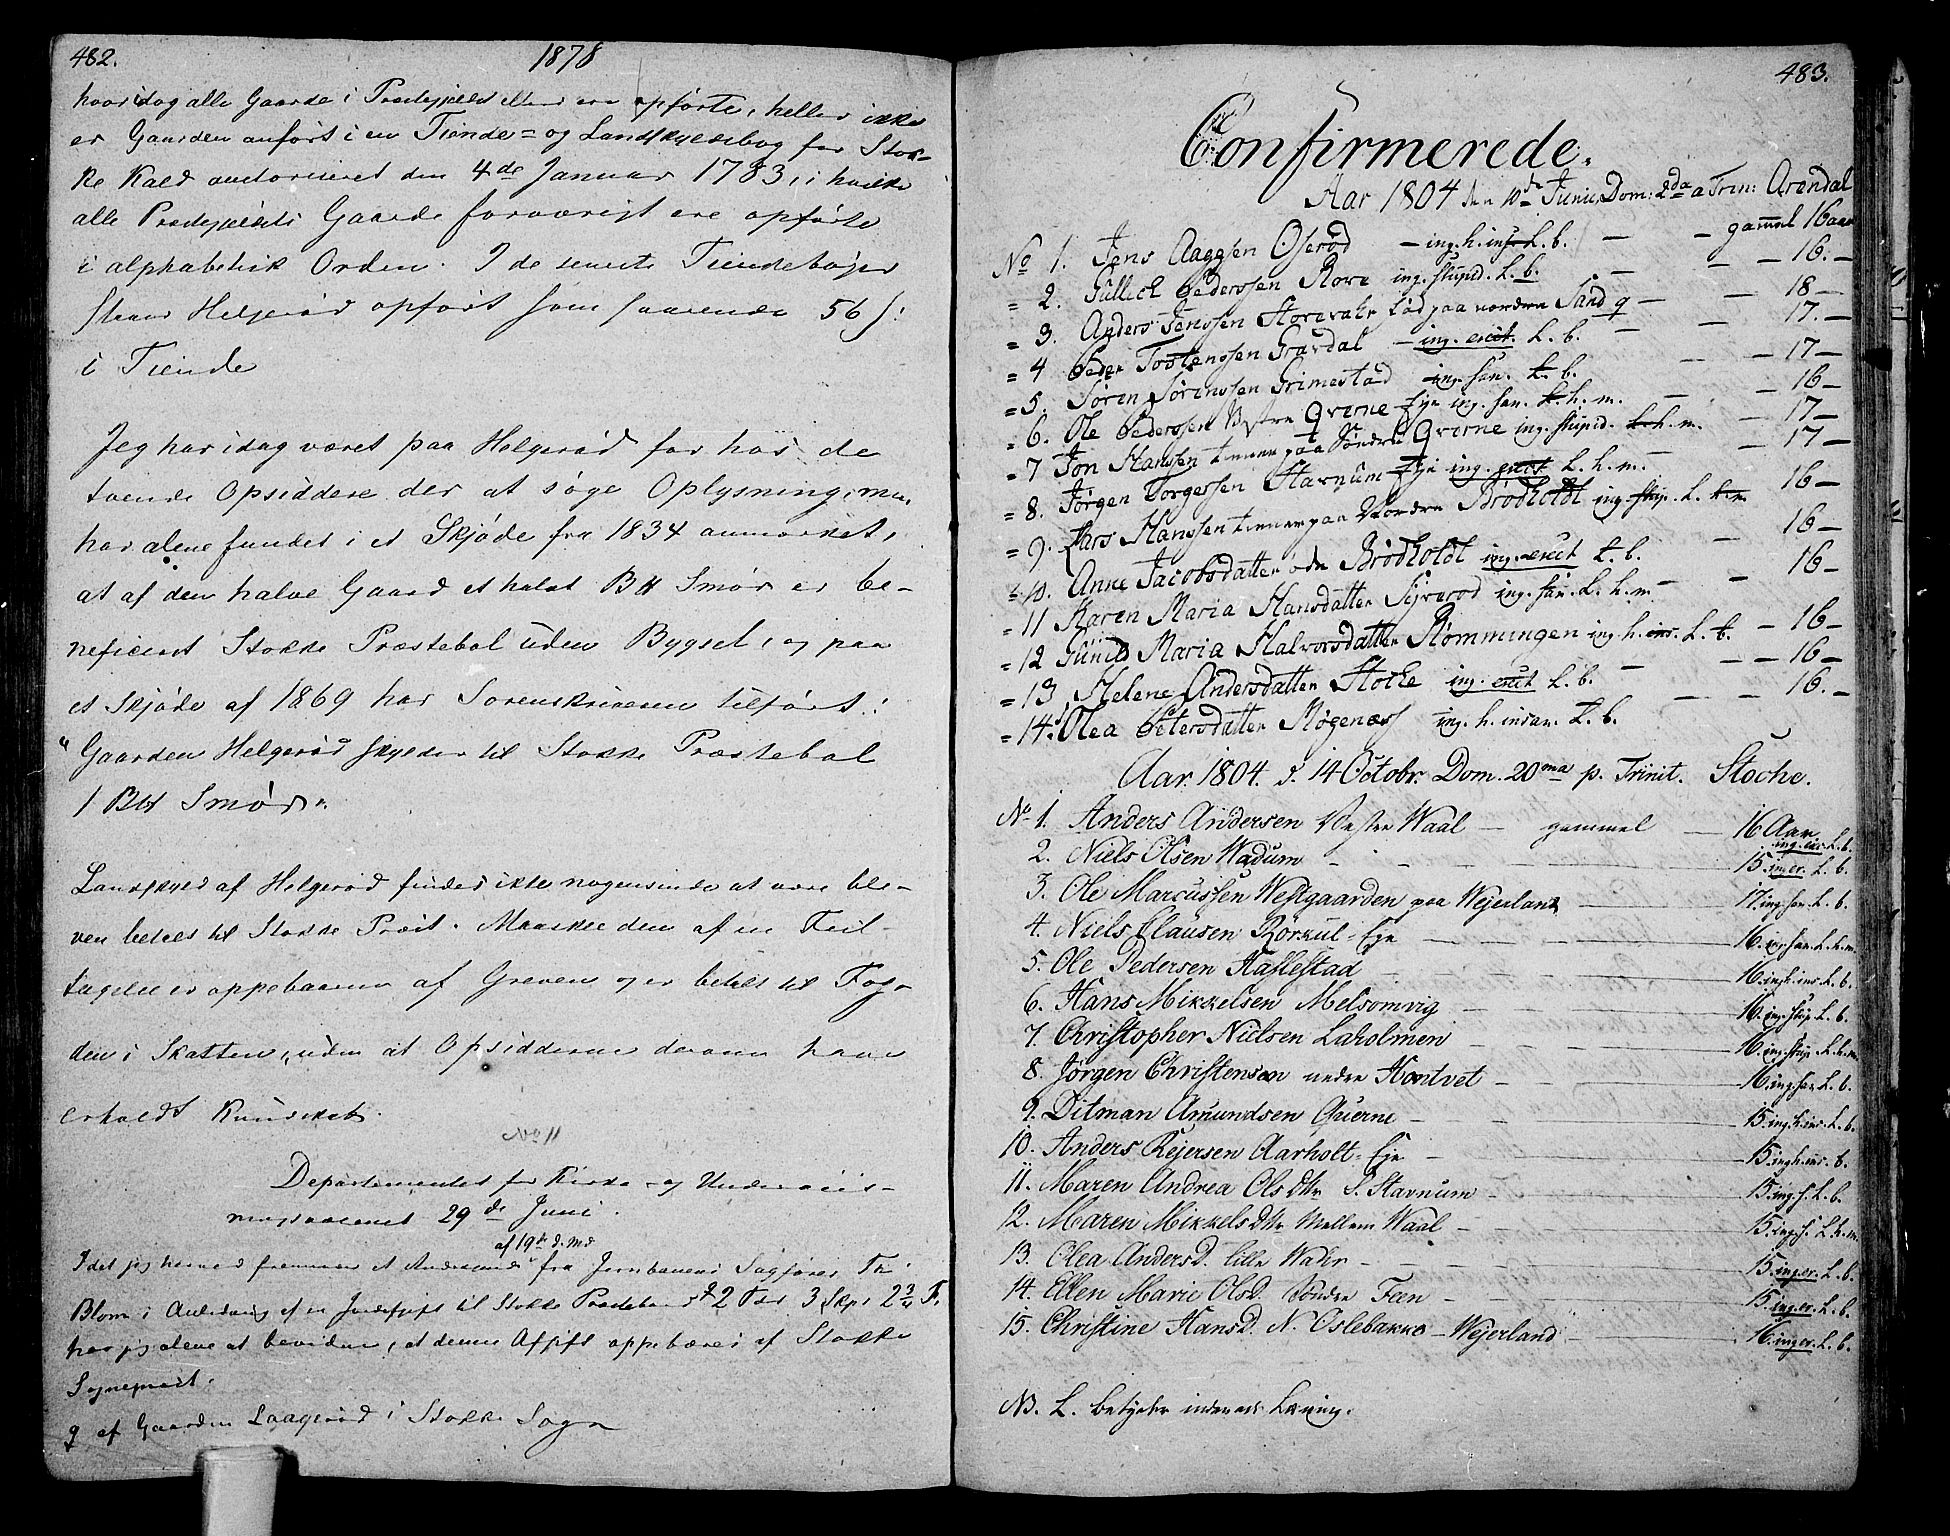 482.
1878
hvori dog alle Gaarde i Prestegjeldet ellers ere opførte, heller ikke
er Gaarden anført i en Tiende- og Landskyldsbog for Stok-
ke Kald autoriseret den 4de Januar 1783, i hvilke
alle Prestegjeldets Gaarde forøvrigt ere opførte
i alphabetisk Orden. I de seneste Tiendebøger
staar Helgerød opført som svarende 56 s:
i Tiende
Jeg har idag været paa Helgerød for hos de
tvende Opsiddere der at søge Oplysning, men
har alene fundet i et Skjøde fra 1834 anmærket,
at af den halve Gaard et halvt B Smør er be-
neficeret Stokke Præstebol uden Bygsel, og paa
et Skjøde af 1869 har Sorenskriveren tilført:
"Gaarden Helgerød skylder til Stokke Præstebol
1 B Smør".
Landskyld af Helgerød findes ikke nogensinde at være ble-
ven betalt til Stokke Præst. Maaskee den af en Feil-
tagelse er oppebaaren af Greven og er betalt til Fog-
den i Skatten, uden at Opsidderne derom have
erholdt Kundskab.
Departementet for Kirke- og Underviis-
ningsvæsenet 29de Juni.
af 19de d. Md
Idet jeg herved fremsender et Andragende fra Jernbanens Sagfører
Blom i Anledning af en Jordafgift til Stokke Prestebord 2 Tdr 3 Skp 2 3/4 F.
har jeg alene at bevidne, at denne Afgift oppebæres af Stokke
Sognepræst.
af Gaarden Laagerød i Stokke Sogn
483.
Confirmerede.
Aar 1804 den 10de Junii, Dom: 2da a Trin: Arendal
No 1. Jens Aagesen Oserød - ing. h. ins. L. b. - - gammel 16 aar
= 2. Gullich Pedersen Rove ing. stupid. L. b. - - 16. -
= 3. Anders Jenssen Storevahr fød paa nordre Sand - - 18 -
= 4 Peder Tostenssen Gravdal - ing. erect. L. b. - - 17. -
= 5. Sören Sörenssen Grimestad ing. san. L. b. - - 17 -
= 6. Ole Pederssen Vestre Qverne Eje ing. san. L. h. m. - 16 -
= 7 Jon Hanssen tiener paa Söndre Qverne ing. stupid. L. h. m. - 17 -
= 8. Jörgen Torgerssen Starnum Eje ing. erect L. h. m. - 17 -
= 9. Lars Hanssen tiener paa Nordre Brödholdt ing. stup. L. h. m. 16 -
= 10. Anne Jacobsdatter Brödholdt ing. erect L. b. - 16 -
= 11 Karen Maria Hansdatter Sjverød ing. san. L. h. m. - 16 -
= 12 Gunild Maria Halvorsdatter Römmingen ing. h. ins. L. b. - 16 -
= 13 Helene Andersdatter Stocke ing. erect L. b. - - 16 -
= 14. Olea Petersdatter Mögenæss ing. h. insan. L. b. - - 16. -
Aar. 1804. d. 14 Octobr. Dom. 20ma p. Trinit. Stocke.
No 1. Anders Andersen Vestre Waal - gammel - 16 Aar ing. ins. L. b.
2. Niels Olsen Wadum - 15 ing. er. L. b.
3. Ole Marcussen Westgaarden paa Wejerland - 17. ing. san. L. b.
4. Niels Clausen Rörkul - Eje - 16. ing. san. L. h. m.
5. Ole Pedersen Hassestad - 16 ing. h. ins. L. b.
6. Hans Mikkelsen Melsomvig - 16. ing. stup L. b.
7. Christopher Nielsen Laholmen - 16. ing. stup. L. h. m.
8. Jörgen Christensen nedre Hontvet - 16 ing. san L. b.
9. Ditman Amundsen Querne - 15. ing. h. ins. L. b.
10. Anders Rejersen Aarholt - Eje - 15. ing h. ins. b.
11. Maren Andrea Ols Dtr S. Stavnum - 15. ing. s. L. b.
12. Maren Mikkels Dtr Mellem Waal - 15. ing. s. L h. m.
13. Olea Anders D. lille Wahr - 15. ing. er. L. b.
14. Ellen Marie Ols D. Söndre Feen - 15. ing. er. L. b.
15. Christine Hans D. N. Oslebakke - Wejerland - 16. ing er. L. b.
NB. L. betyder indenads Læsning.